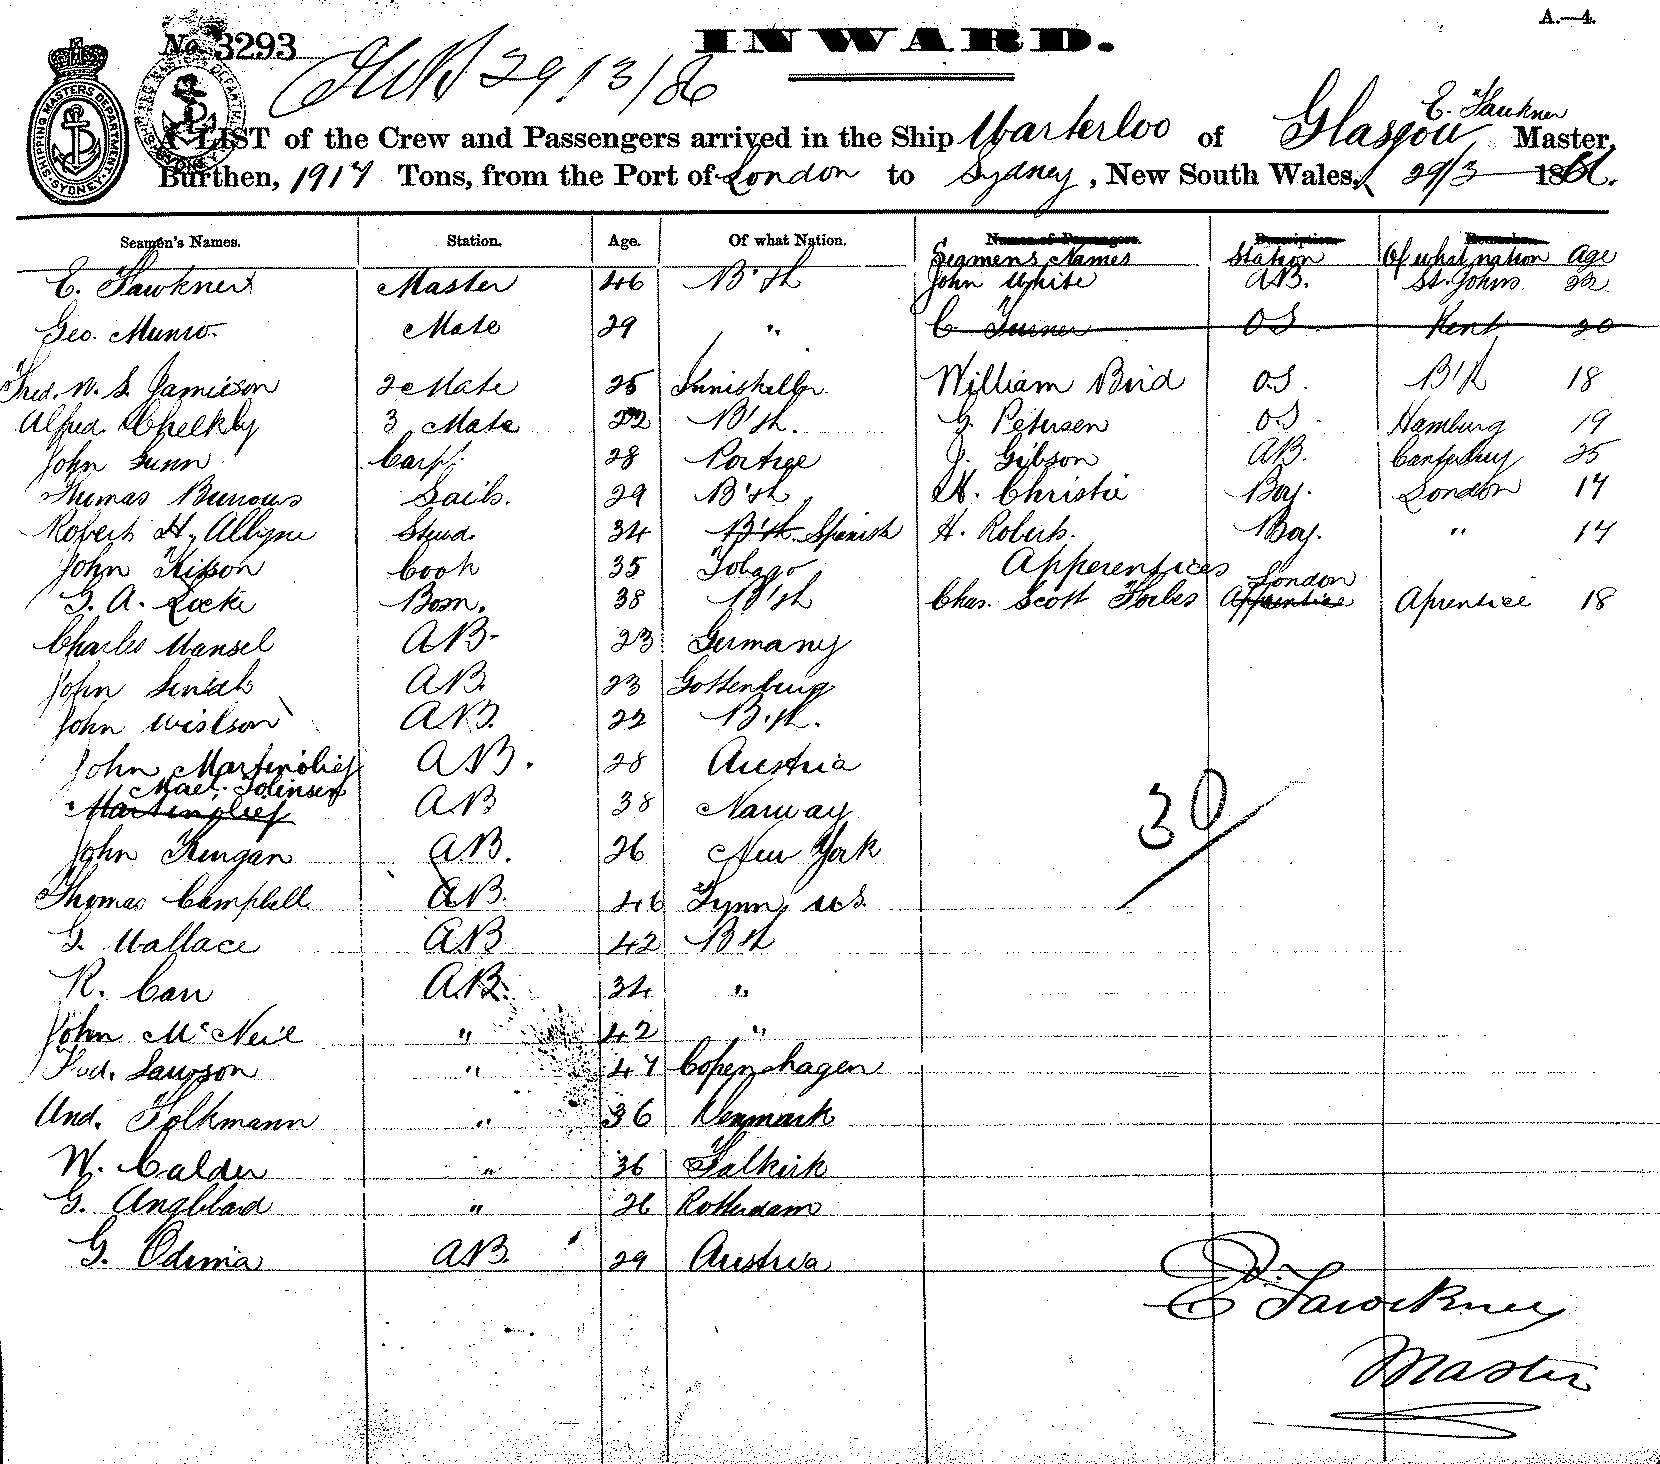 A.—4.
No. 3293
INWARD.
29/3/86
E. Fawkner
A LIST of the Crew and Passengers arrived in the Ship Warterloo of Glasgow Master,
Burthen, 1917 Tons, from the Port of London to Sydney, New South Wales, 29/3 1886.
SHIPPING MASTERS DEPARTMENT SYDNEY
Seamen's Names. Station. Age. Of what Nation. Names of Passengers. Description. Remarks.
Seamens Names Station Of what nation Age
E. Fawkner Master 46 B'sh John White AB. St. Johns 22
Geo. Munro. Mate 29 " C Turner OS Kent 20
Fred. W. S. Jamieson 2 Mate 25 Inniskillen William Bird O.S. B'sh 18
Alfred Chelkby 3 Mate 22 B'sh. G. Petersen O.S. Hamburg 19
John Gunn Carp. 28 Portree J. Gibson AB. Canterbury 25
Thomas Burrows Sails. 29 B'sh H. Christie Boy. London 17
Robert H. Alligne Stewd. 34 B'sh Spanish H. Roberts. Boy. " 17
John Kipson Cook 35 Tobago Apperentices
G. A. Locke Bosn. 38 B'sh Chas. Scott Forbes Apprentice London Aprentice 18
Charles Mansel AB. 23 Germany
John AB. 23 Gottenburg
John Wislson AB. 22 B.sh.
John Martinolief AB. 28 Austria
Mael. Johnsen
Martinolief AB 38 Norway
John Keirgan AB. 26 New York
Thomas Campbell AB. 46 Lynn, U.S.
G. Wallace AB 42 Bsh
R. Carr AB. 34 "
John McNeil " 42 "
Fred. Lawson " 47 Copenhagen
And. Folkmann " 36 Denmark
W. Calder " 36 Falkirk
G. Anglblad " 26 Rotterdam
G. Odinia AB. 29 Austria
30
E. Fawckner
Master